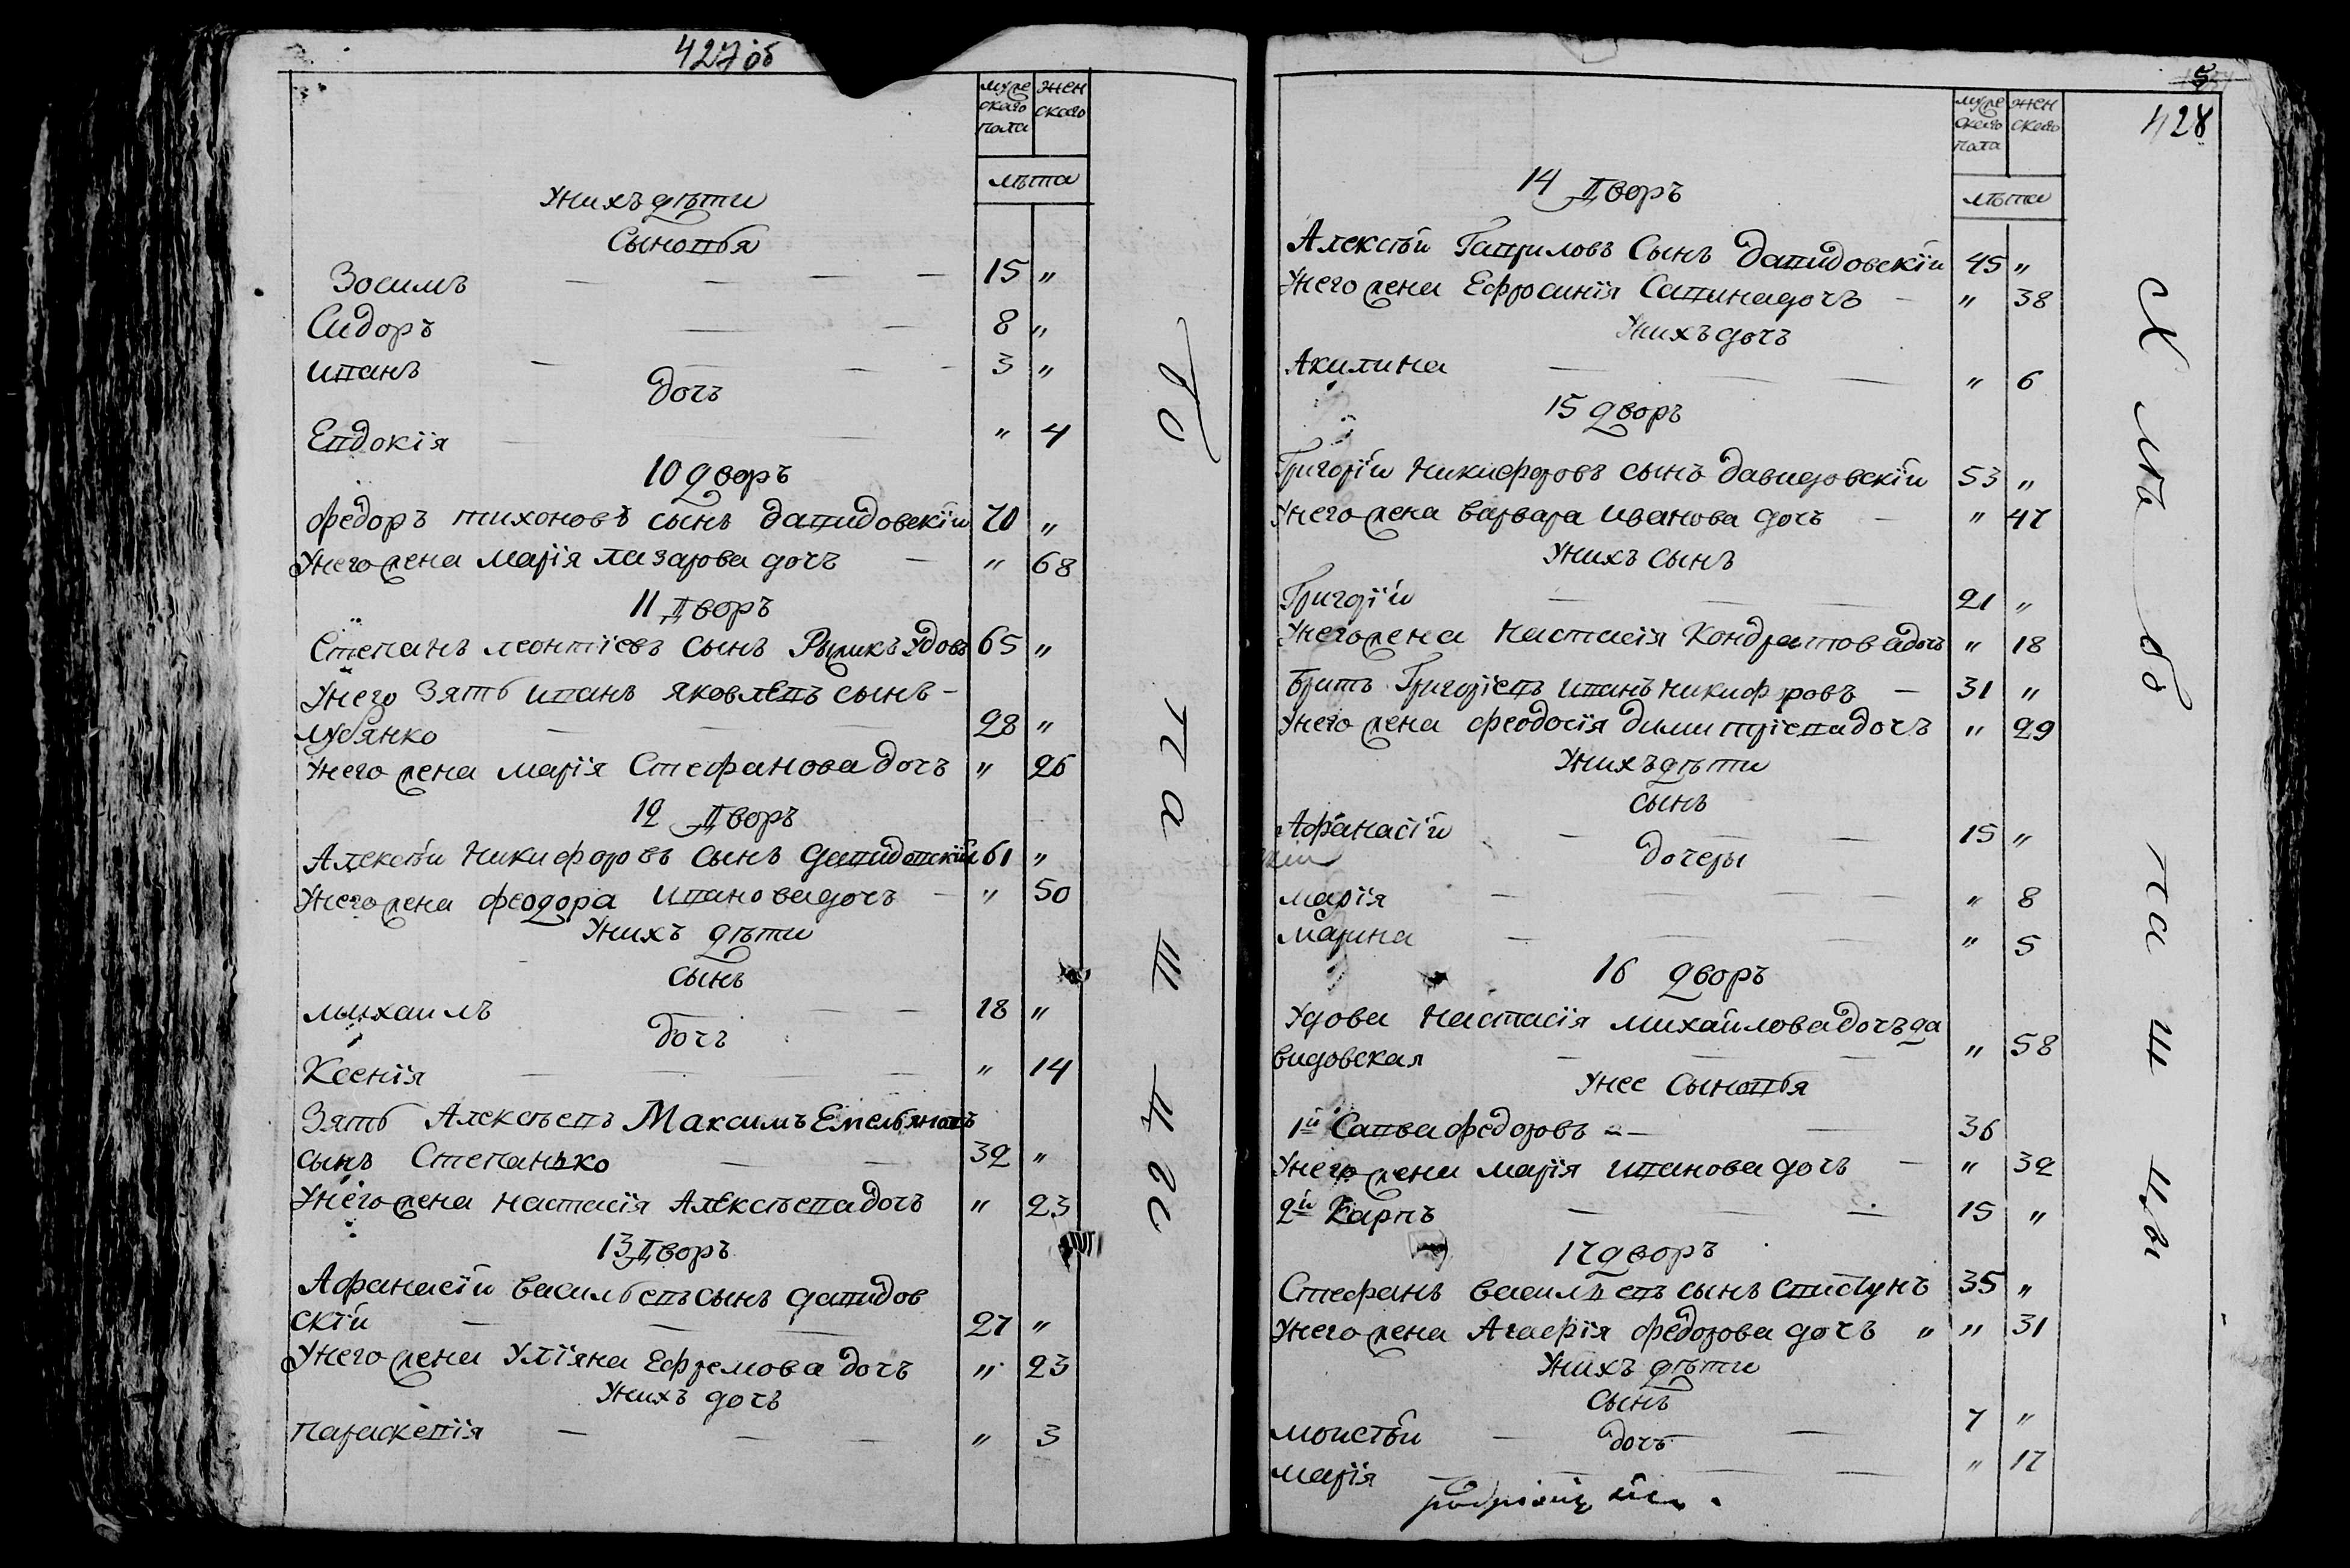 427 об
муже ского пола
жен ского
лѣта
Унихъ дѣти
Сыновья
Зосимъ — — — — 15 „
Сидоръ — — 8 „
иванъ — — — — 3 „
дочъ
Евдокїя — — „ 4
10 дворъ
Федоръ тихоновъ сынъ давидовскїи 70 „
Унего жена марїя лазарова дочъ — „ 68
11 Дворъ
Степанъ леонтїевъ сынъ Рыжикъ удовъ 65 „
Унего Зять иванъ яковлевъ сынъ —
лубянко — — 28 „
Унего жена марїя Стефанова дочъ „ 26
12 Дворъ
Алексѣй Никифоровъ сынъ давидовскїй 61 „
Унего жена феодора ивановадочъ — „ 50
Унихъ дѣти
сынъ
михаилъ — — 18 „
дочъ
Ксенїя — — — — „ 14
Зять Алексѣевъ Максимъ Емельяновъ
сынъ Степанько — — 32 „
Унего жена настасїя Алексѣевадочъ „ 23
13 Дворъ
Афанасїй васильевъ сынъ давидов
скїй — — — 27 „
Унего жена Улїяна Ефремова дочъ „ 23
Унихъ дочъ
параскевїя — — — „ 3
ца
428
муже ского пола
жен ского
лѣта
14 Дворъ
Алексѣй Гавриловъ Сынъ Давидовскїи 45 „
Унего жена Ефросинїя Савинадочъ — „ 38
Унихъ дочъ
Акилина — — — „ 6
15 дворъ
Григорїй Никифоровъ сынъ давидовскїй 53 „
Унего жена варвара иванова дочъ — „ 47
Унихъ сынъ
Григорїй — — — 21 „
Унего жена настасїя Кондратовадочъ „ 18
Братъ Григорїевъ иванъ никифоровъ — 31 „
Унего жена феодосїя димитрїевадочъ „ 29
Унихъ дѣти
сынъ
Афанасїй — — — 15 „
дочеры
марїя — — — „ 8
марина — — — „ 5
16 дворъ
Удова Настасїя михайловадочъ да
видовская — — — „ 58
Унее Сыновья
1й Савва федоровъ — — 36
Унего жена марїя иванова дочъ — „ 32
2й Карпъ — — — 15 „
17 дворъ
Стефанъ васильевъ сынъ 35 „
Унего жена Агафїя федорова дочъ „ „ 31
Унихъ дѣти
сынъ
моисѣй — — 7 „
дочъ
марїя — — — „ 17